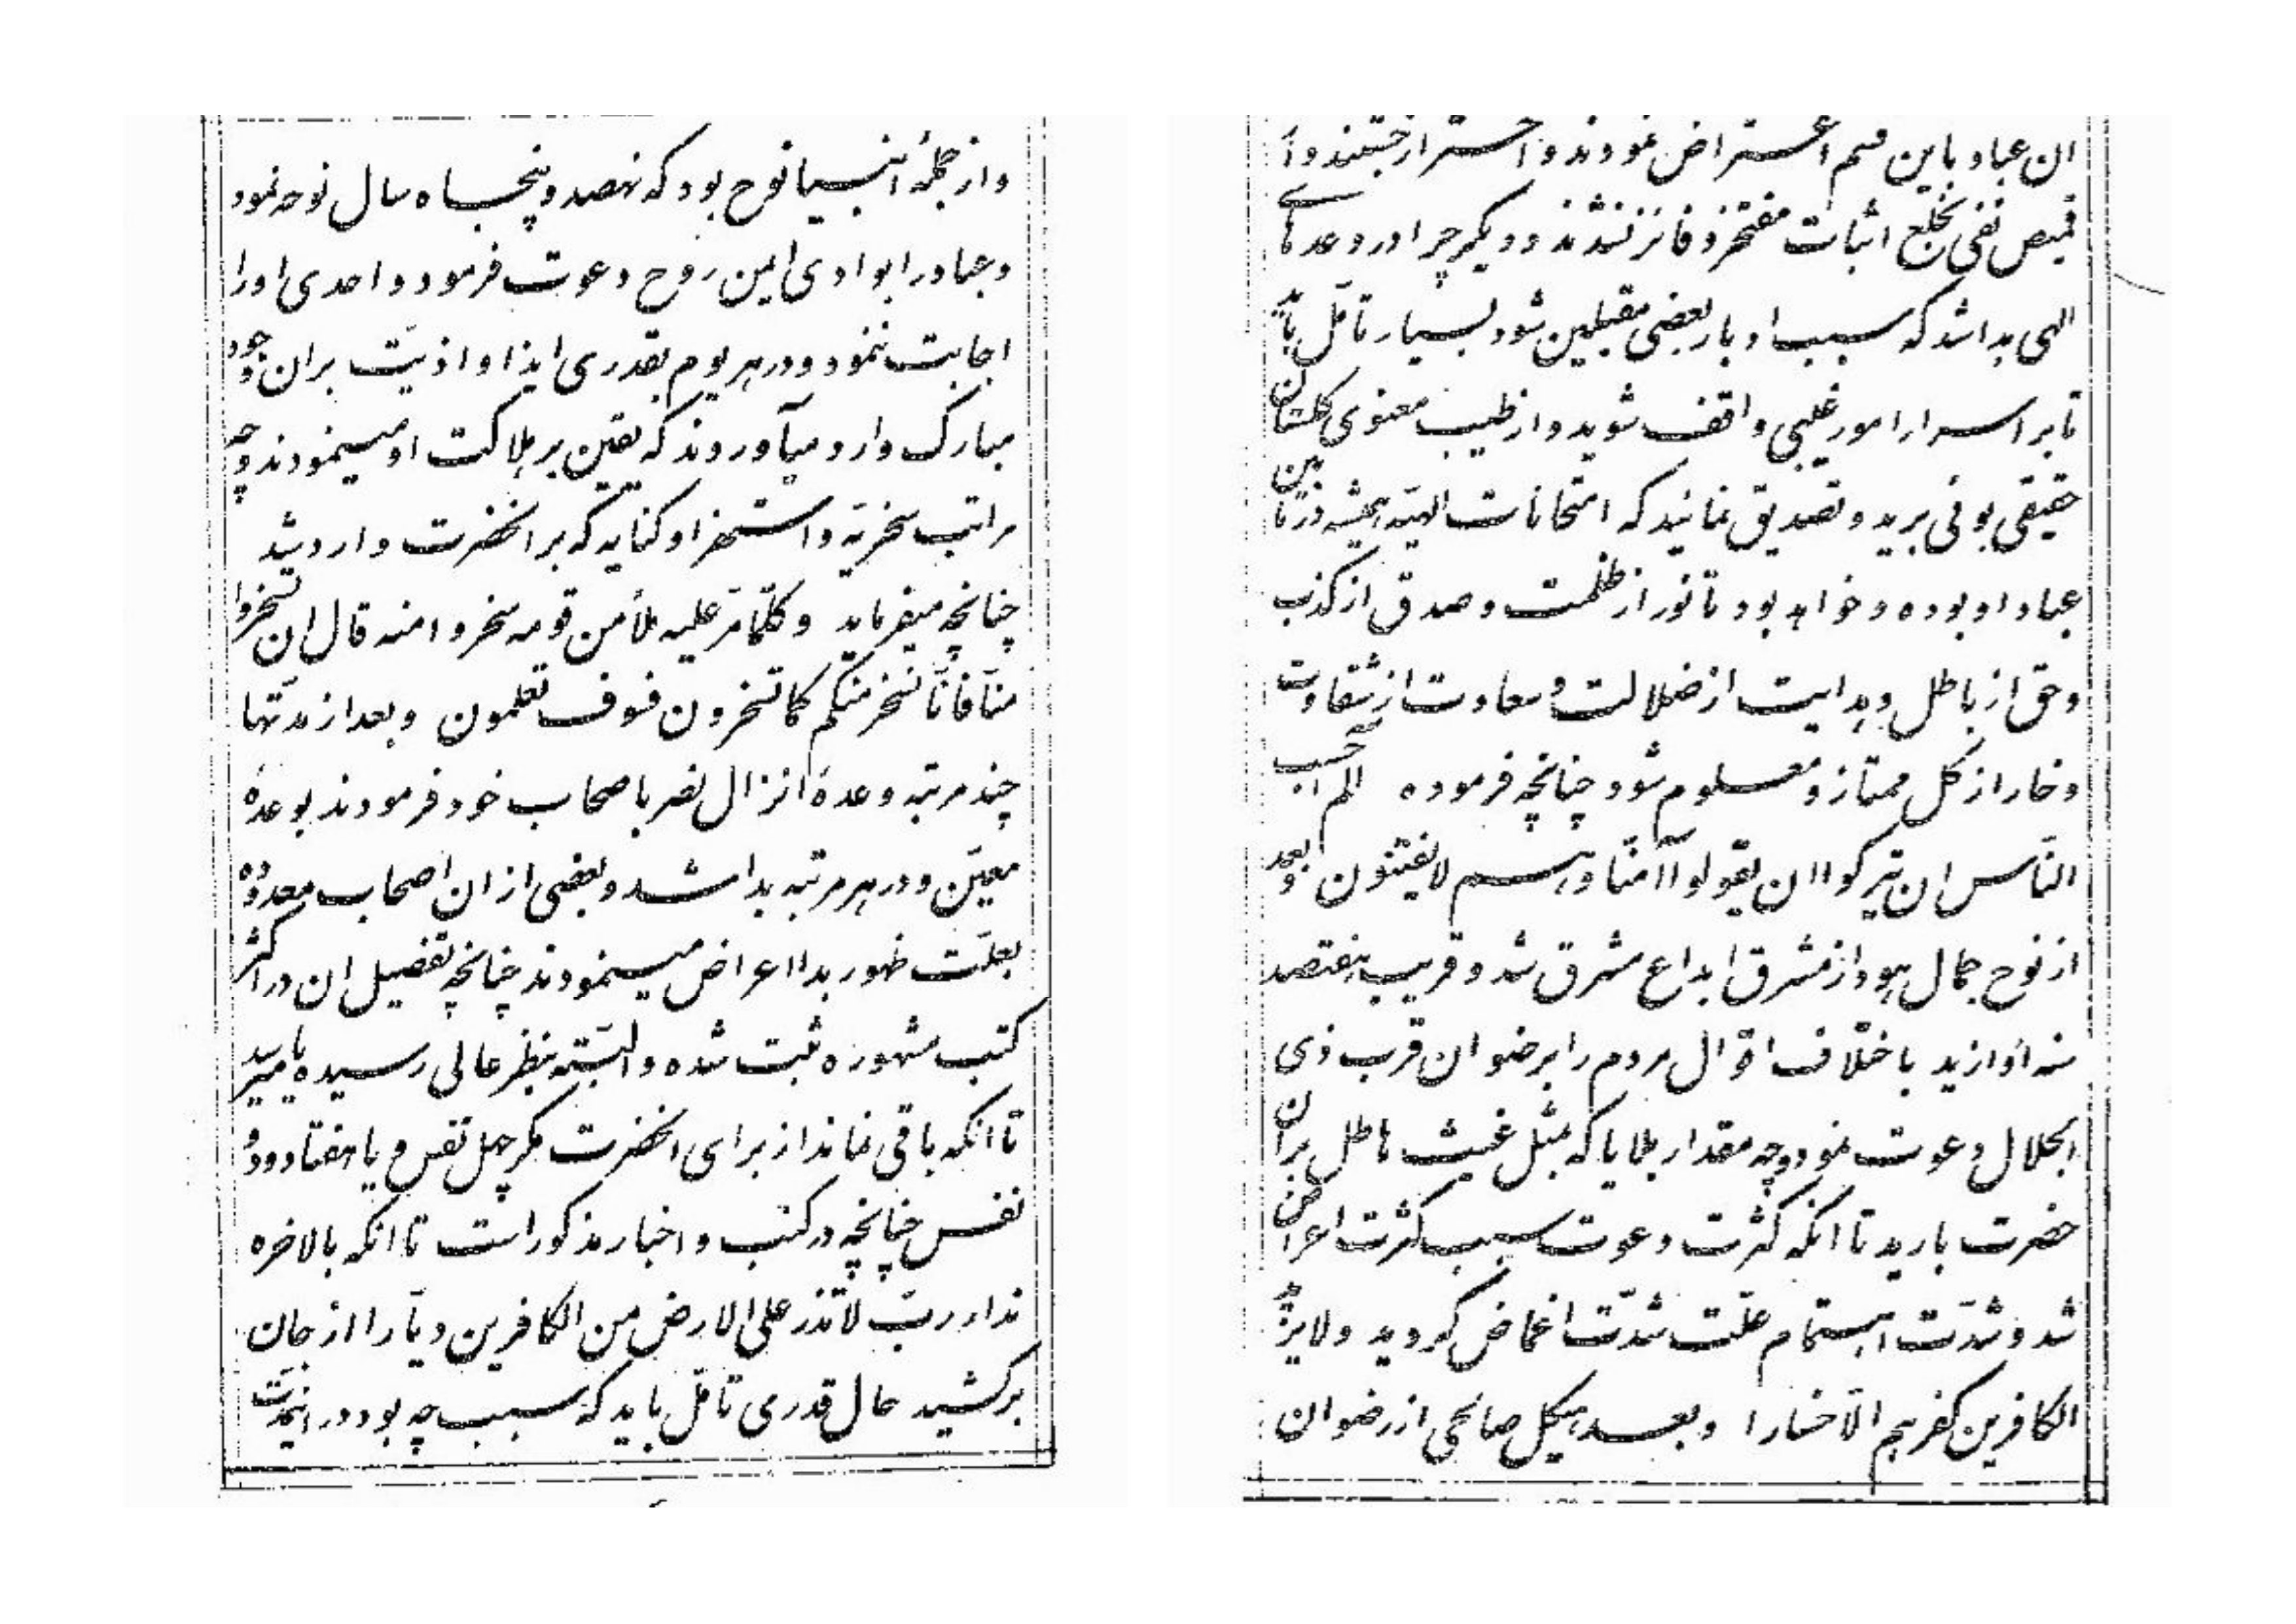 و از جملهٔ انبیا نوح بود که نهصد و پنجاه سال نوحه نمود
و عباد را بوادی ایمن روح دعوت فرمود و احدی او را
اجابت ننمود و در هر یوم بقدری ایذا و اذیّت بر ان وجود
مبارک وارد میآوردند که یقین بر هلاکت او مینمودند و چه
مراتب سخریّه و استهزا و کنایه که بر انحضرت وارد شد
چنانچه میفرماید و کلّما مرّ علیه ملأ من قومه سخروا منه قال ان تسخروا
منّا فانّا نسخر منکم کما تسخرون فسوف تعلمون و بعد از مدّتها
چند مرتبه وعدهٔ انزال نصر باصحاب خود فرمودند بوعدهٔ
معیّن و در هر مرتبه بدا شد و بعضی از ان اصحاب معدوده
بعلّت ظهور بدا اعراض مینمودند چنانچه تفصیل ان در اکثر
کتب مشهوره ثبت شده و البتّه بنظر عالی رسیده یا میرسد
تا انکه باقی نماند از برای انحضرت مگر چهل نفس و یا هفتاد و دو
نفس چنانچه در کتب و اخبار مذکور است تا انکه بالاخره
نداء ربّ لا تذر علی الارض من الکافرین دیّارا از جان
برکشید حال قدری تأمّل باید که سبب چه بود در اینمدّت
ان عباد باین قسم اعتراض نمودند و احتراز جستند و از
قمیص نفی بخلع اثبات مفتخر و فائز نشدند و دیگر چرا در وعدهای
الهی بدا شد که سبب ادبار بعضی مقبلین شود بسیار تأمّل باید
تا بر اسرار امور غیبی واقف شوید و از طیب معنوی گلستان
حقیقی بوئی برید و تصدیق نمائید که امتحانات الهیّه همیشه در مابین
عباد او بوده و خواهد بود تا نور از ظلمت و صدق از کذب
و حق از باطل و هدایت از ضلالت و سعادت از شقاوت
و خار از گل ممتاز و معلوم شود چنانچه فرموده الم احسب
النّاس ان یترکوا ان یقولوا آمنّا و هم لا یفتنون و بعد
از نوح جمال هود از مشرق ابداع مشرق شد و قریب هفتصد
سنه او ازید باختلاف اقوال مردم را برضوان قرب ذی
الجلال دعوت نمود و چه مقدار بلایا که بمثل غیث هاطل بر ان
حضرت بارید تا انکه کثرت دعوت سبب کثرت اعراض
شد و شدّت اهتمام علّت شدّت اغماض گردید و لا یزید
الکافرین کفرهم الّا خسارا و بعد هیکل صالحی از رضوان